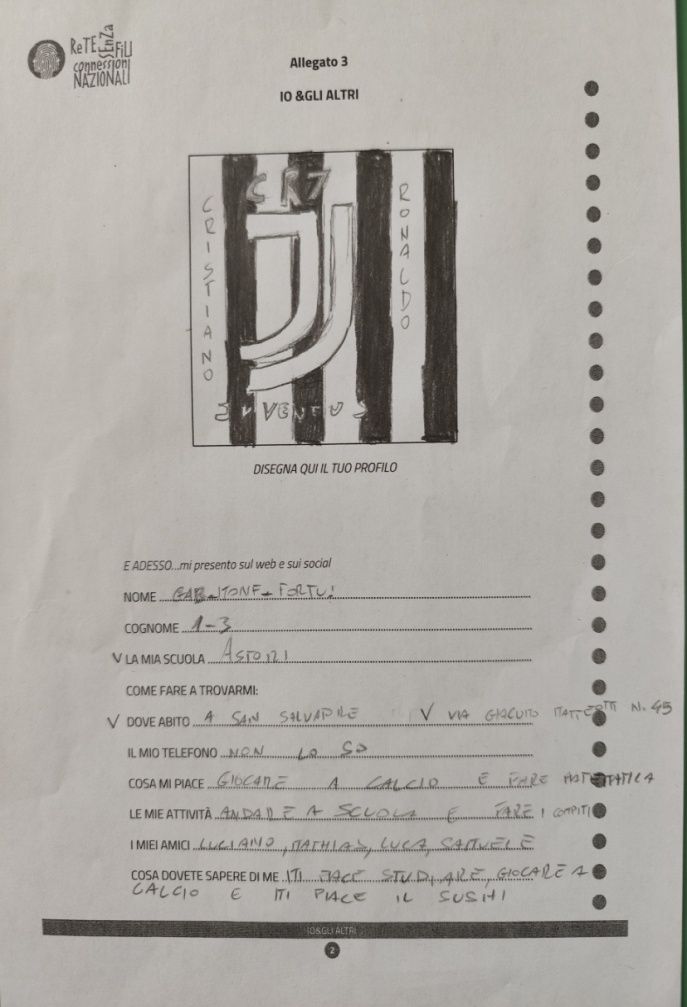 ReTE SEnZa FiLi
connessioni
NAZIONALI
Allegato 3
IO &GLI ALTRI
CR7
CRISTIANO
RONALDO
JUVENTUS
DISEGNA QUI IL TUO PROFILO
E ADESSO...mi presento sul web e sui social
NOME
COGNOME 1-3
V LA MIA SCUOLA ASTORI
COME FARE A TROVARMI:
V DOVE ABITO A SAN V VIA N. 45
IL MIO TELEFONO NON LO SO
COSA MI PIACE GIOCARE A CALCIO E FARE
LE MIE ATTIVITÀ ANDARE A SCUOLA E FARE I COMPITI
I MIEI AMICI LUCIANO, MATHIAS, LUCA, SAMUELE
COSA DOVETE SAPERE DI ME MI PIACE STUDIARE, GIOCARE A
CALCIO E MI PIACE IL SUSHI
IO&GLI ALTRI
2